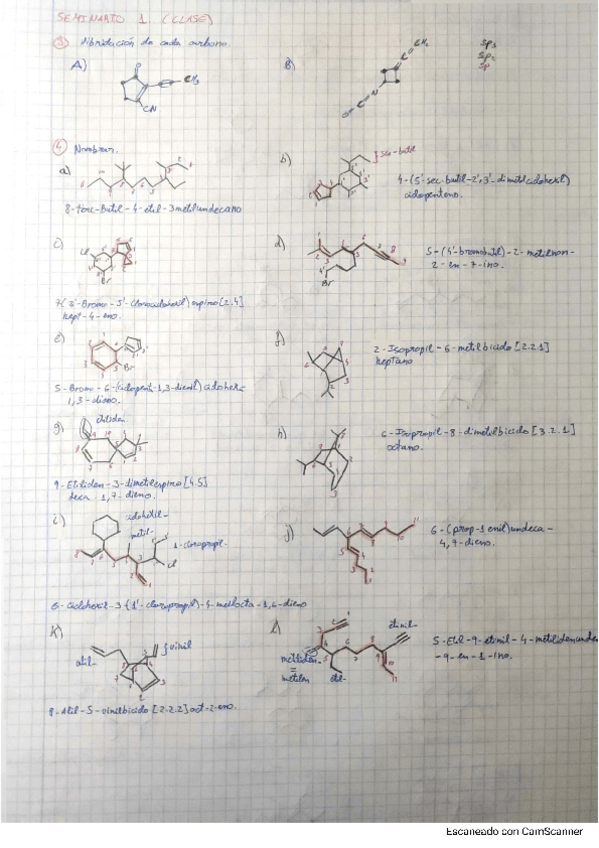 SEMINARIO 1 (CLASE)
③ Hibridación de cada carbono
A)
CH₃
CN
B)
CH₃
sp₃
sp₂
sp
④ Nombrar.
a)
8-terc-Butil-4-etil-3metilundecano
b)
sec-butil
4-(5'-sec-butil-2',3'-dimetilciclohexil)
ciclopenteno.
c)
Cl
Br
7(3'-Bromo-5'-clorociclohexil)espiro[2.4]
hept-4-eno.
d)
Br
5-(4'-bromobutil)-2-metilnon-
2-en-7-ino.
e)
Br
5-Bromo-6-(ciclopenta-1,3-dienil)ciclohexa-
1,3-dieno.
f)
2-Isopropil-6-metilbiciclo[2.2.1]
heptano
g)
etiliden.
9-Etiliden-3-dimetilespiro[4.5]
deca-1,7-dieno.
h)
6-Isopropil-8-dimetilbiciclo[3.2.1]
octano.
i)
ciclohexil-
metil-
1-cloropropil-
Cl
6-ciclohexil-3(1'-cloropropil)-4-metilocta-1,6-dieno
j)
6-(prop-1enil)undeca-
4,7-dieno.
k)
alil-
vinil
8-Alil-5-vinilbiciclo[2.2.2]oct-2-eno.
l)
etinil-
metiliden-
=
metilen
etil-
5-Etil-9-etinil-4-metiliden
-9-en-1-ino.
Escaneado con CamScanner